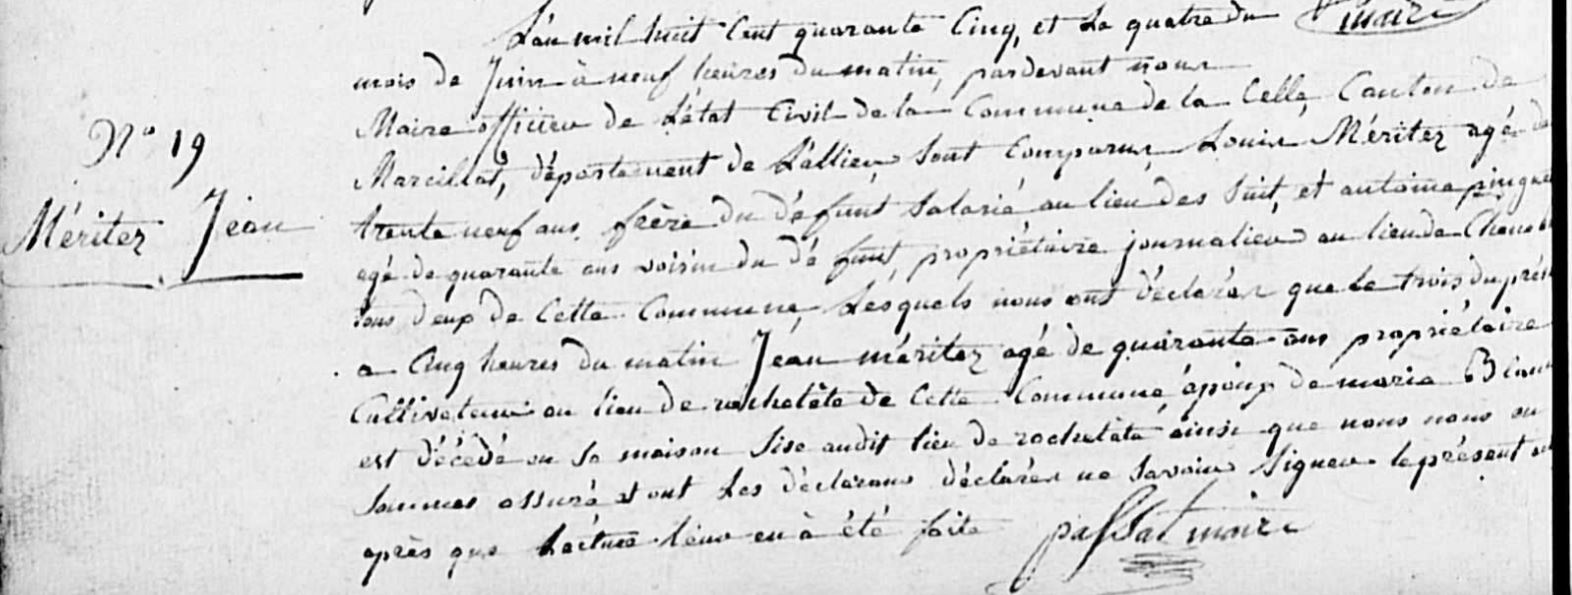 maire
L'an mil huit Cent quarante Cinq, et Le quatre du
mois de Juin à neuf heures du matin, pardevant nous
Maire officier de L'état Civil de la Commune de la Celle, Canton de
N° 19
Marcillat, département de L'allier, Sont Comparus, Louis Méritez agé de
Méritez Jean
trente neuf ans, frère du défunt Salarié au lieu des Suit, et antoine
agé de quarante ans voisin du défunt, propriétaire journalier au lieu de
tous deux de Cette Commune, Lesquels nous ont déclarér que le trois du prés
a Cinq heures du matin Jean méritez agé de quarante ans propriétaire
Cultivateur au lieu de rochetête de Cette Commune époux de marie
est décédé en Sa maison Sise audit lieu de rochetete ainsi que nous nous en
Sommes assuré et ont Les déclarans déclarér ne Savoir Signer le présent
après que Lécture leur en à été faite passat maire